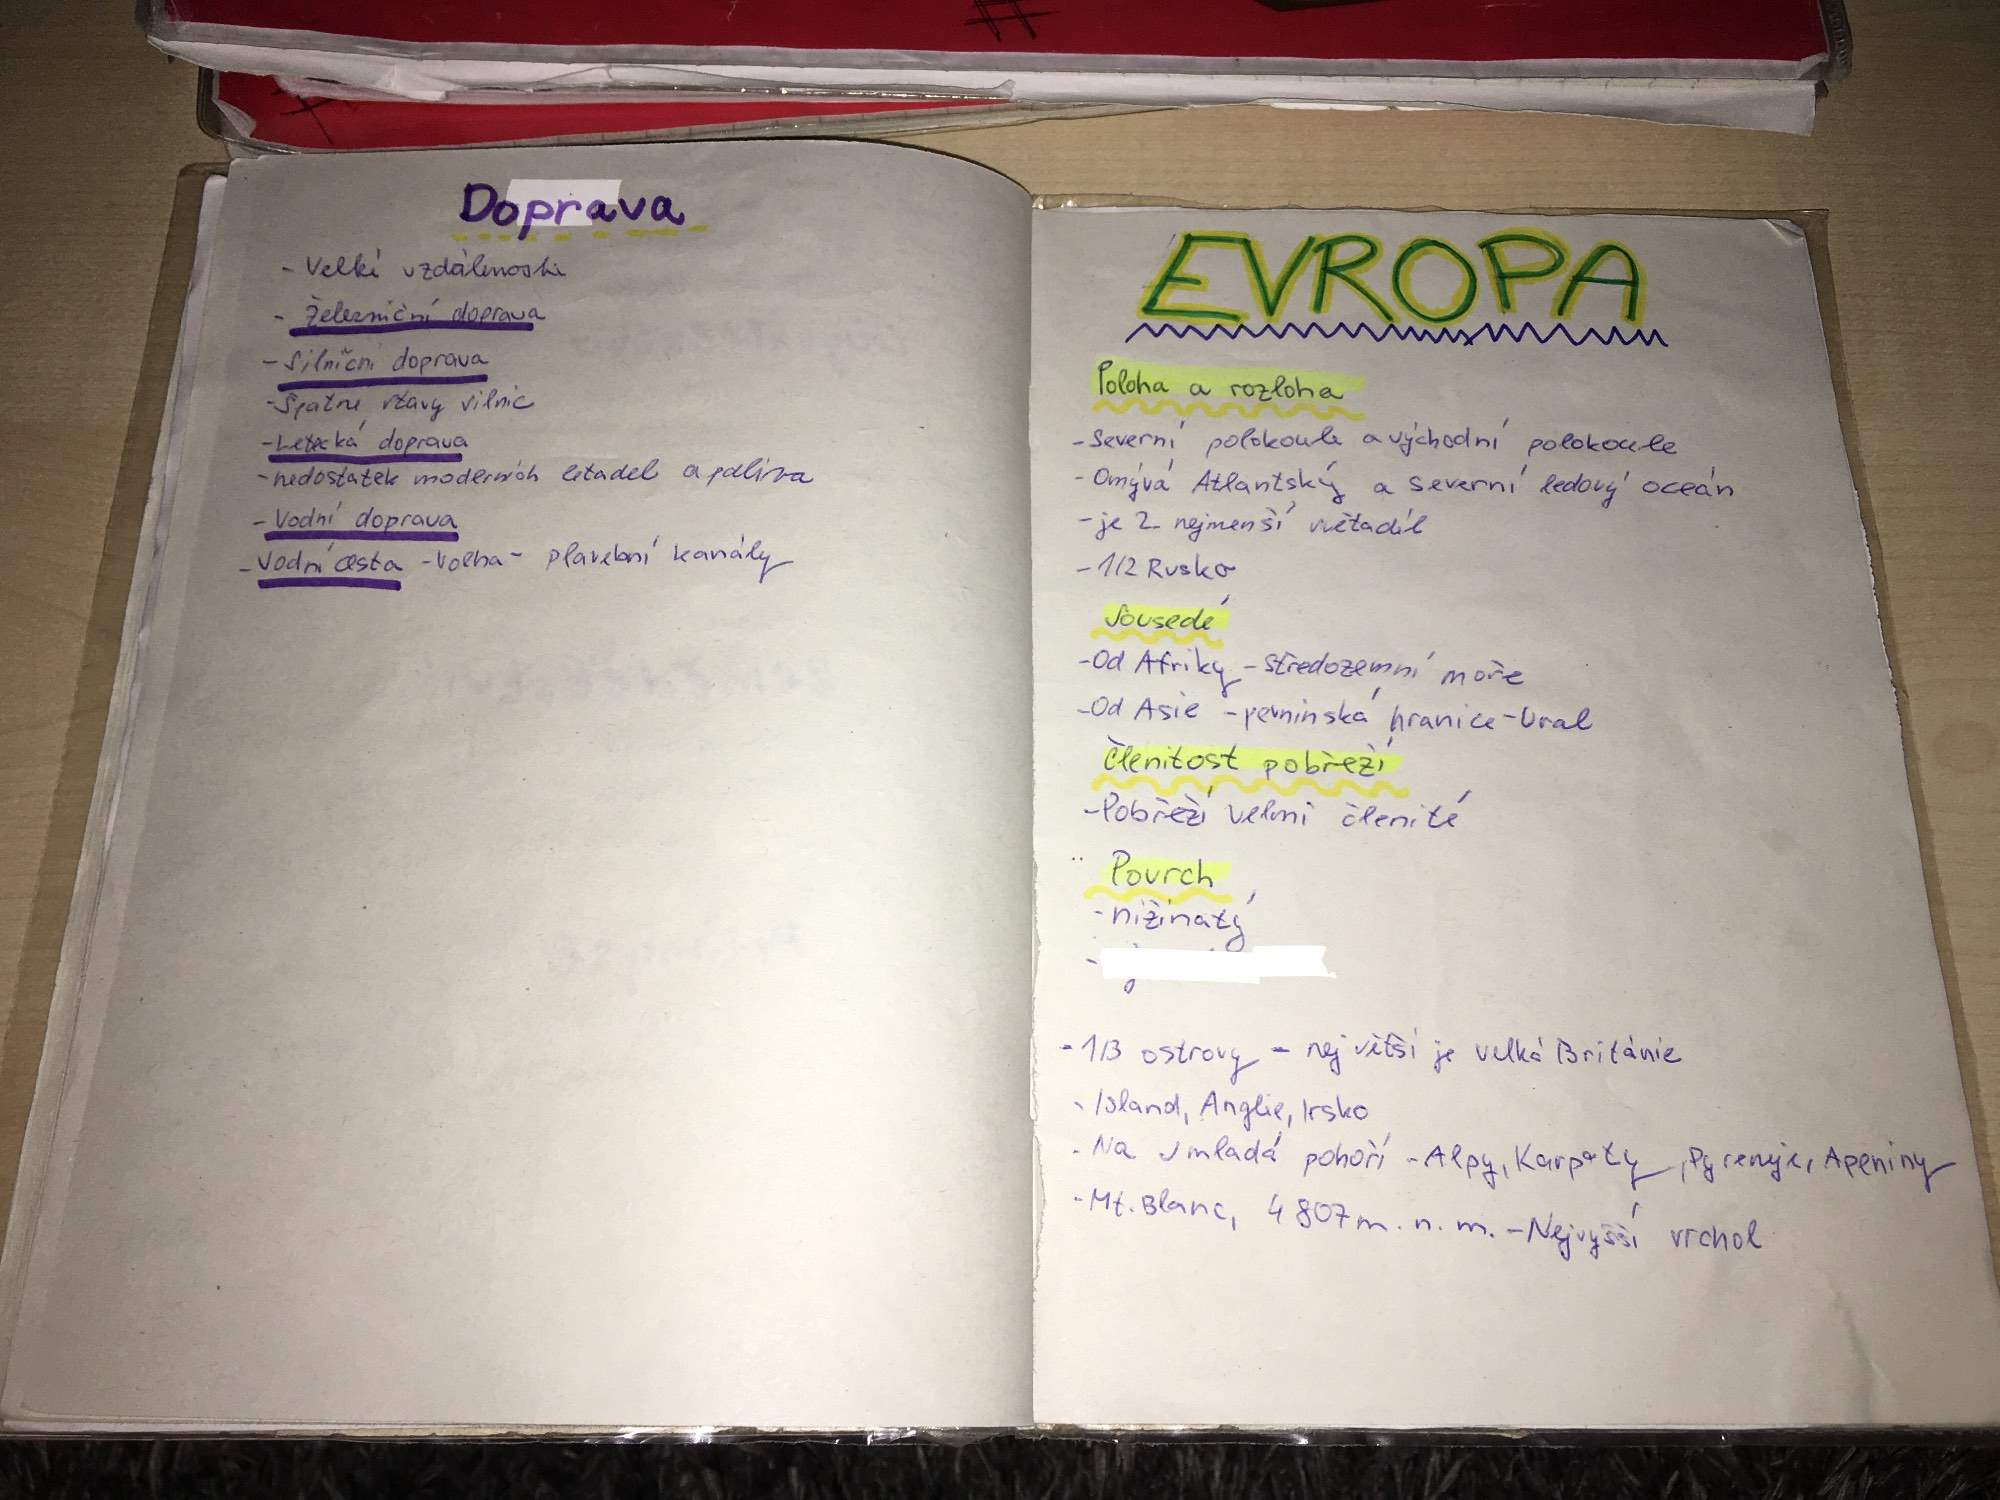 Doprava
- Velké vzdálenosti
- Železniční doprava
- Silniční doprava
- Špatné stavy silnic
- Letecká doprava
- nedostatek moderních letadel a paliva
- Vodní doprava
- Vodní cesta - Volha - plavební kanály
EVROPA
Poloha a rozloha
- Severní polokoule a východní polokoule
- Omývá Atlantský a Severní ledový oceán
- je 2. nejmenší světadíl
- 1/2 Rusko
Sousedé
- Od Afriky - středozemní moře
- Od Asie - pevninská hranice - Ural
Členitost pobřeží
- Pobřeží velmi členité
Povrch
- nížinatý
- 1/3 ostrovy - největší je velká Británie
- Island, Anglie, Irsko
- Na J mladá pohoří - Alpy, Karpaty, Pyreneje, Apeniny
- Mt. Blanc, 4 807 m. n. m. - Nejvyšší vrchol